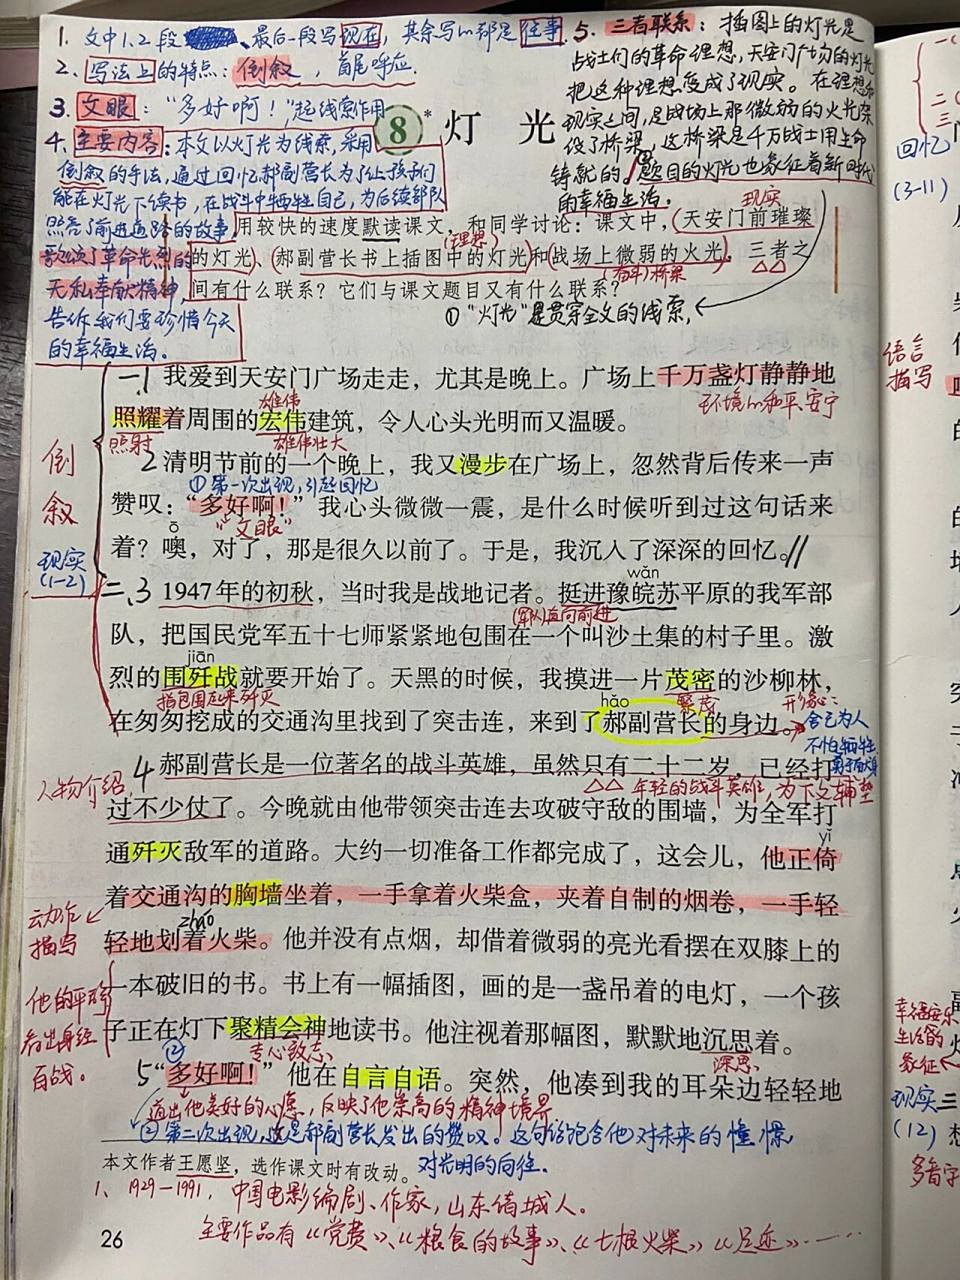 1. 文中1.2段、最后一段写现在，其余写的都是往事.
2. 写法上的特点：倒叙，首尾呼应.
3. 文眼："多好啊！"起线索作用
4. 主要内容：本文以灯光为线索，采用
倒叙的手法，通过回忆郝副营长为了让孩们
能在灯光下读书，在战斗中牺牲自己，为后续部队
照亮了前进道路的故事，
歌颂了革命先烈的
无私奉献精神，
告诉我们要珍惜今天
的幸福生活。
5. 三者联系：插图上的灯光是
战士们的革命理想，天安门广场的灯光
把这种理想变成了现实。在理想和
现实之间，是战场上那微弱的火光架
设了桥梁。这桥梁是千万战士用生命
铸就的。②题目的灯光也象征着新时代
的幸福生活。
8* 灯 光
现实
用较快的速度默读课文，和同学讨论：课文中，天安门前璀璨
(理想)
的灯光、郝副营长书上插图中的灯光和战场上微弱的火光，三者之
(奋斗)桥梁
间有什么联系？它们与课文题目又有什么联系？
①"灯光"是贯穿全文的线索，
一.1 我爱到天安门广场走走，尤其是晚上。广场上千万盏灯静静地
雄伟
环境的和平、安宁
照耀着周围的宏伟建筑，令人心头光明而又温暖。
照射
雄伟壮大
2 清明节前的一个晚上，我又漫步在广场上，忽然背后传来一声
①第一次出现，引起回忆
赞叹："多好啊！"我心头微微一震，是什么时候听到过这句话来
ō
"文眼"
着？噢，对了，那是很久以前了。于是，我沉入了深深的回忆。//
倒
叙
现实
(1-2)
wǎn
二、3 1947年的初秋，当时我是战地记者。挺进豫皖苏平原的我军部
(军队)直向前进
队，把国民党军五十七师紧紧地包围在一个叫沙土集的村子里。激
jiān
烈的围歼战就要开始了。天黑的时候，我摸进一片茂密的沙柳林，
指包围起来歼灭
hǎo
繁茂
形象：
在匆匆挖成的交通沟里找到了突击连，来到了郝副营长的身边。
舍己为人
不怕牺牲
勇于献身
人物介绍
4 郝副营长是一位著名的战斗英雄，虽然只有二十二岁，已经打
△△ 年轻的战斗英雄，为下文铺垫
过不少仗了。今晚就由他带领突击连去攻破守敌的围墙，为全军打
yǐ
通歼灭敌军的道路。大约一切准备工作都完成了，这会儿，他正倚
着交通沟的胸墙坐着，一手拿着火柴盒，夹着自制的烟卷，一手轻
动作
描写
zháo
轻地划着火柴。他并没有点烟，却借着微弱的亮光看摆在双膝上的
一本破旧的书。书上有一幅插图，画的是一盏吊着的电灯，一个孩
他的平静
看出身经
百战。
子正在灯下聚精会神地读书。他注视着那幅图，默默地沉思着。
②
专心致志
深思
5"多好啊！"他在自言自语。突然，他凑到我的耳朵边轻轻地
道出他美好的心愿，反映了他崇高的精神境界
②第二次出现，这是郝副营长发出的赞叹。这句话饱含他对未来的憧憬
对光明的向往.
本文作者王愿坚，选作课文时有改动。
1、1929－1991，中国电影编剧、作家，山东诸城人。
主要作品有《党费》、《粮食的故事》、《七根火柴》《足迹》......
26
回忆
(3-11)
语言
描写
幸福安乐
生活的
象征
现实
(12)
三
多音字